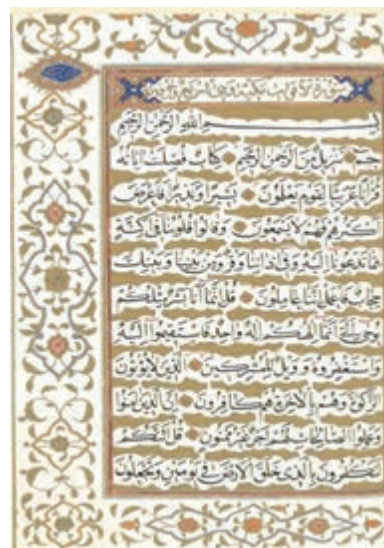 سورة مكية وهي
بسم الله الرحمن الرحيم
حم تنزيل من الرحمن الرحيم كتاب فصلت آياته
قرآنا عربيا لقوم يعلمون بشيرا ونذيرا فأعرض
أكثرهم فهم لا يسمعون وقالوا قلوبنا في أكنة
مما تدعونا إليه وفي آذاننا وقر ومن بيننا وبينك
حجاب فاعمل إننا عاملون قل إنما أنا بشر مثلكم
يوحى إلي أنما إلهكم إله واحد فاستقيموا إليه
واستغفروه وويل للمشركين الذين لا يؤتون
الزكوة وهم بالآخرة هم كافرون إن الذين آمنوا
وعملوا الصالحات لهم أجر غير ممنون قل أئنكم
لتكفرون بالذي خلق الأرض في يومين وتجعلون